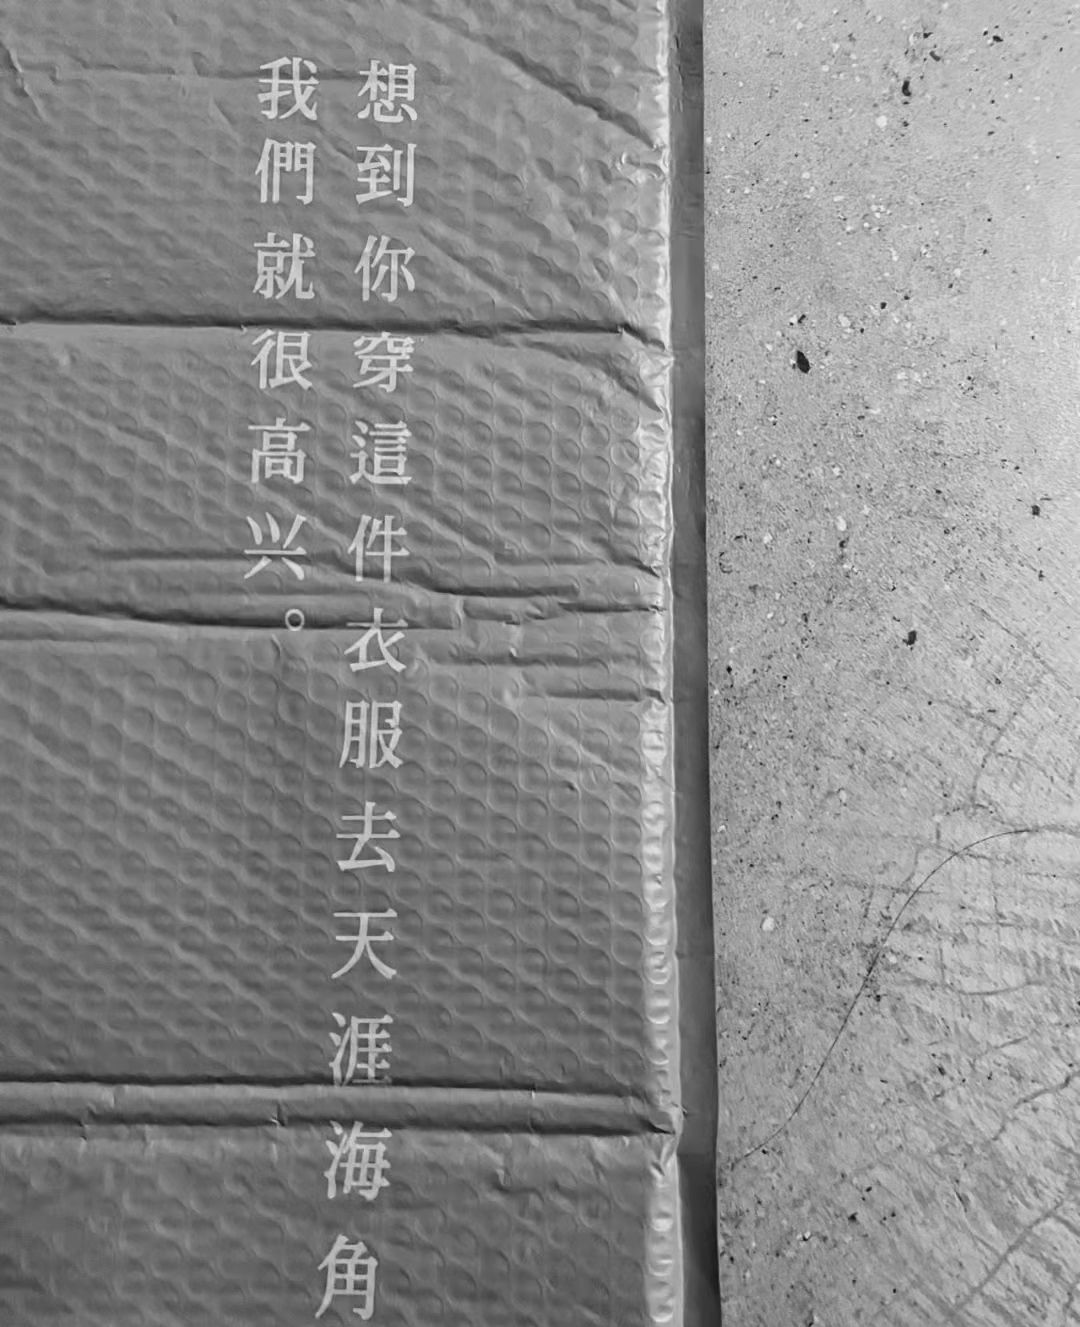 想到你穿這件衣服去天涯海角
我們就很高兴。